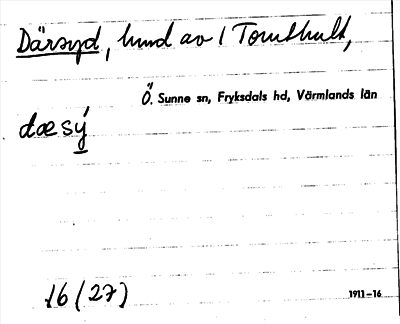 Därsyd, hmd av 1 Tomthult,
Ö. Sunne sn, Fryksdals hd, Värmlands län
dæsý
16 (27)
1911-16